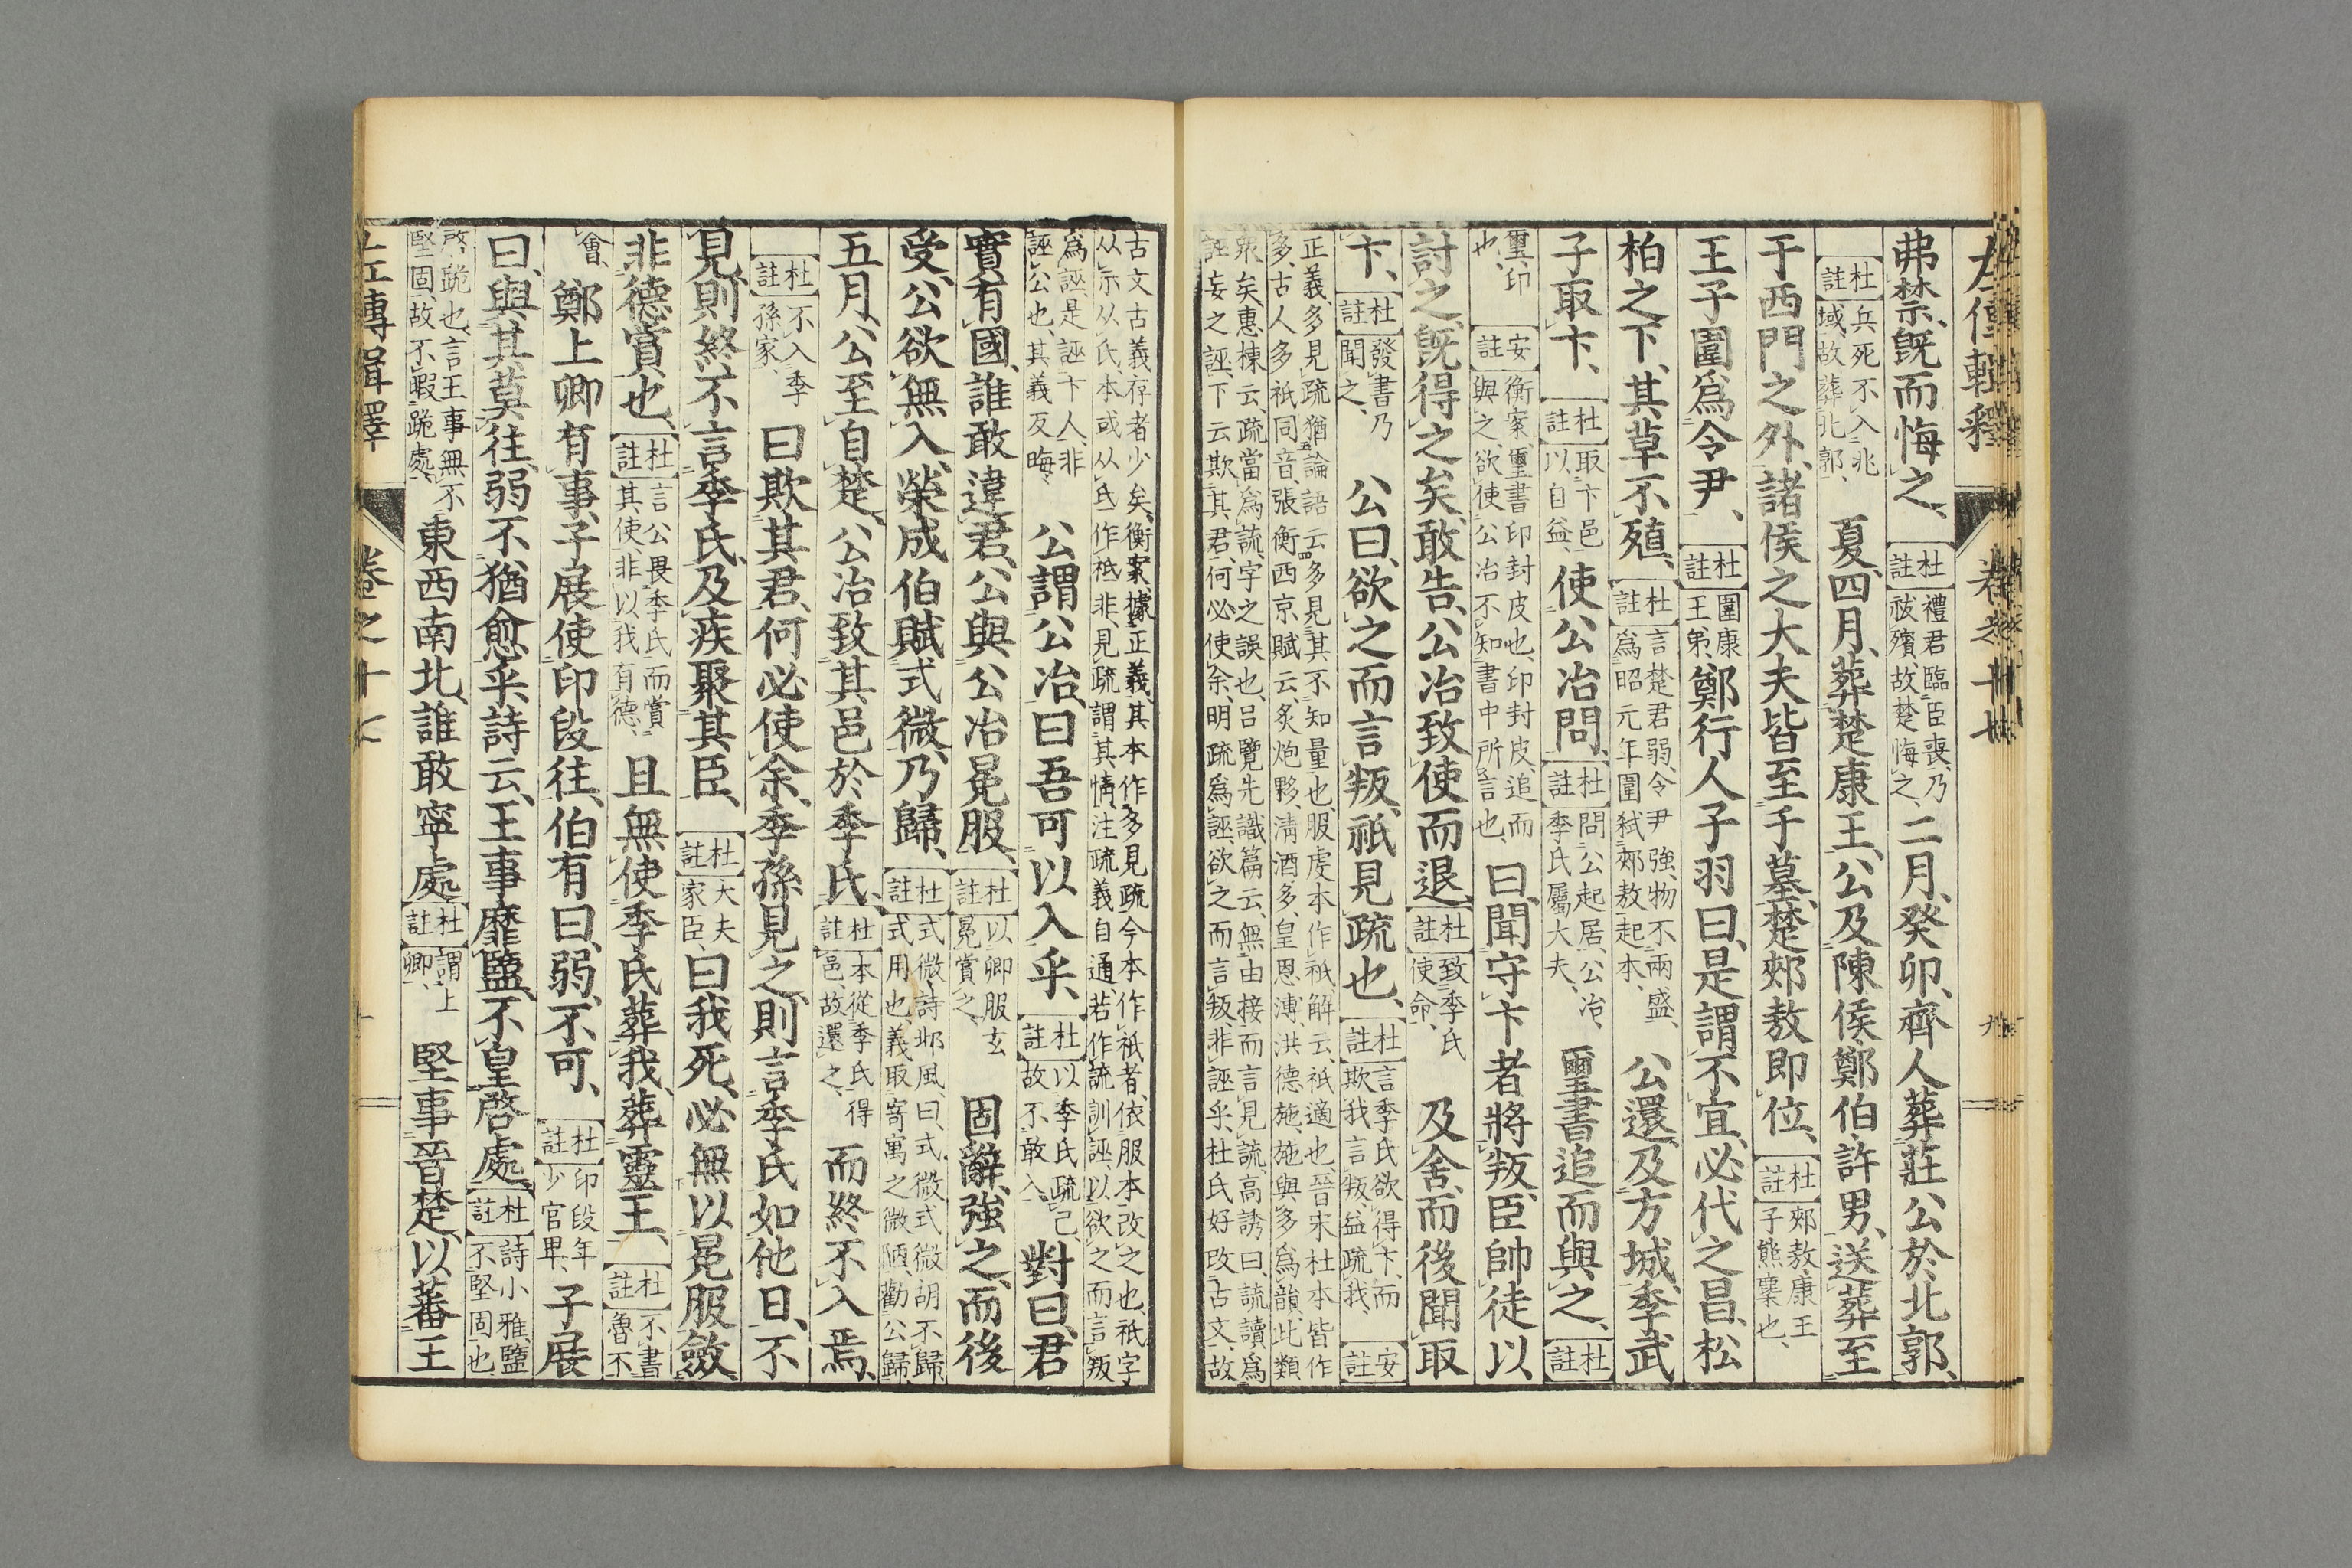 左傳輯釋 卷之十七 九
弗禁、既而悔之、杜註禮君臨臣喪、乃祓殯、故楚悔之、二月、癸卯、齊人葬莊公於北郭、
杜註兵死不入兆域、故葬北郭、夏、四月、葬楚康王、公及陳侯鄭伯許男、送葬至
于西門之外、諸侯之大夫皆至于墓、楚郟敖即位、杜註郟敖、康王子熊麇也、
王子圍爲令尹、杜註圍康王弟、鄭行人子羽曰、是謂不宜、必代之昌、松
柏之下、其草不殖、杜註言楚君弱、令尹強、物不兩盛、爲昭元年圍弑郟敖起本、公還、及方城、季武
子取卞、杜註取卞邑以自益、使公冶問、杜註問公起居、公冶、季氏屬大夫、璽書追而與之、杜註
璽、印也、安註衡案、璽書印封皮也、印封皮、追而與之、欲使公冶不知書中所言也、曰、聞守卞者將叛、臣帥徒以
討之、既得之矣、敢告、公冶致使而退、杜註致季氏使命、及舍、而後聞取
卞、杜註發書乃聞之、公曰、欲之而言叛、祇見疏也、杜註言季氏欲得卞、而欺我言叛、益疏我、安註
正義、多見疏、猶論語云多見其不知量也、服虔本作祇、解云、祇、適也、晉宋杜本皆作
多、古人多祇同音、張衡西京賦云、炙炮夥、清酒多、皇恩溥、洪德施、施與多爲韻、此類
衆矣、惠棟云、疏當爲䟽、字之誤也、呂覽先識篇云、無由接而言見䟽、高誘曰、䟽讀爲
誣妄之誣、下云欺其君何必使余、明疏爲誣、欲之而言叛、非誣乎、杜氏好改古文、故
古文古義存者少矣、衡案、據正義、其本作多見疏、今本作祇者、依服本改之也、祇字
从示从氏、本或从氐作衹、非、見疏、謂其情、注疏義自通、若作䟽訓誣、以欲之而言叛
爲誣、是誣卞人、非誣公也、其義反晦、公謂公冶、曰吾可以入乎、杜註以季氏疏己、故不敢入、對曰、君
實有國、誰敢違君、公與公冶冕服、杜註以卿服玄冕賞之、固辭、強之、而後
受、公欲無入、榮成伯賦式微、乃歸、杜註式微、詩邶風、曰、式微式微、胡不歸、式、用也、義取寄寓之微陋、勸公歸、
五月、公至自楚、公冶致其邑於季氏、杜註本從季氏得邑、故還之、而終不入焉、
杜註不入季孫家、曰欺其君、何必使余、季孫見之、則言季氏如他日、不
見、則終不言季氏、及疾、聚其臣、杜註大夫家臣、曰我死、必無以冕服斂
非德賞也、杜註言公畏季氏而賞其使、非以我有德、且無使季氏葬我、葬靈王、杜註不書魯不
會、鄭上卿有事、子展使印段往、伯有曰、弱、不可、杜註印段年少官卑、子展
曰、與其莫往、弱不猶愈乎、詩云、王事靡盬、不皇啓處、杜註詩小雅、盬、不堅固也、
啓、跪也、言王事無不堅固、故不暇跪處、東西南北、誰敢寧處、杜註謂上卿、堅事晉楚、以蕃王
左傳輯釋 卷之十七